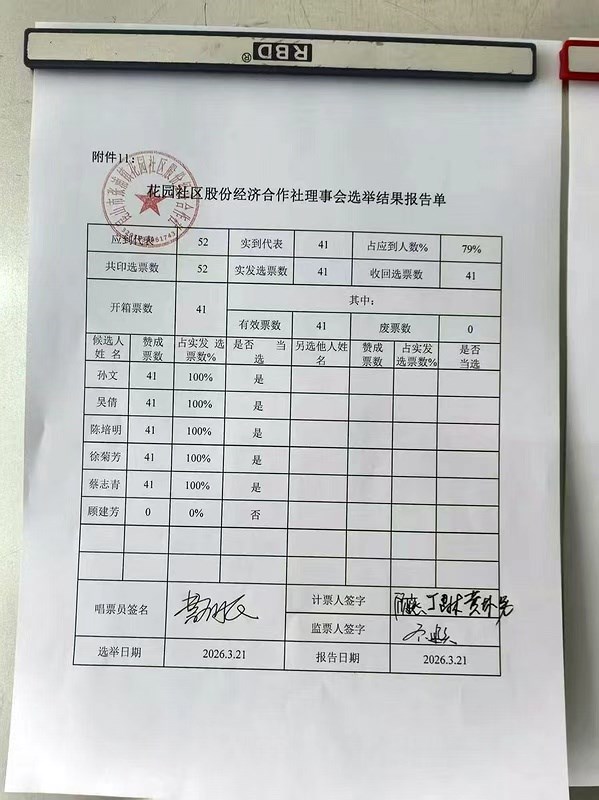 RBD®
附件11:
花园社区股份经济合作社理事会选举结果报告单
应到代表 52 实到代表 41 占应到人数% 79%
共印选票数 52 实发选票数 41 收回选票数 41
开箱票数 41 其中:
有效票数 41 废票数 0
候选人姓 名 赞成票数 占实发 选票数% 是否 当选 另选他人姓名 赞成票数 占实发选票数% 是否当选
孙文 41 100% 是
吴倩 41 100% 是
陈培明 41 100% 是
徐菊芳 41 100% 是
蔡志青 41 100% 是
顾建芳 0 0% 否
唱票员签名 计票人签字
监票人签字
选举日期 2026.3.21 报告日期 2026.3.21